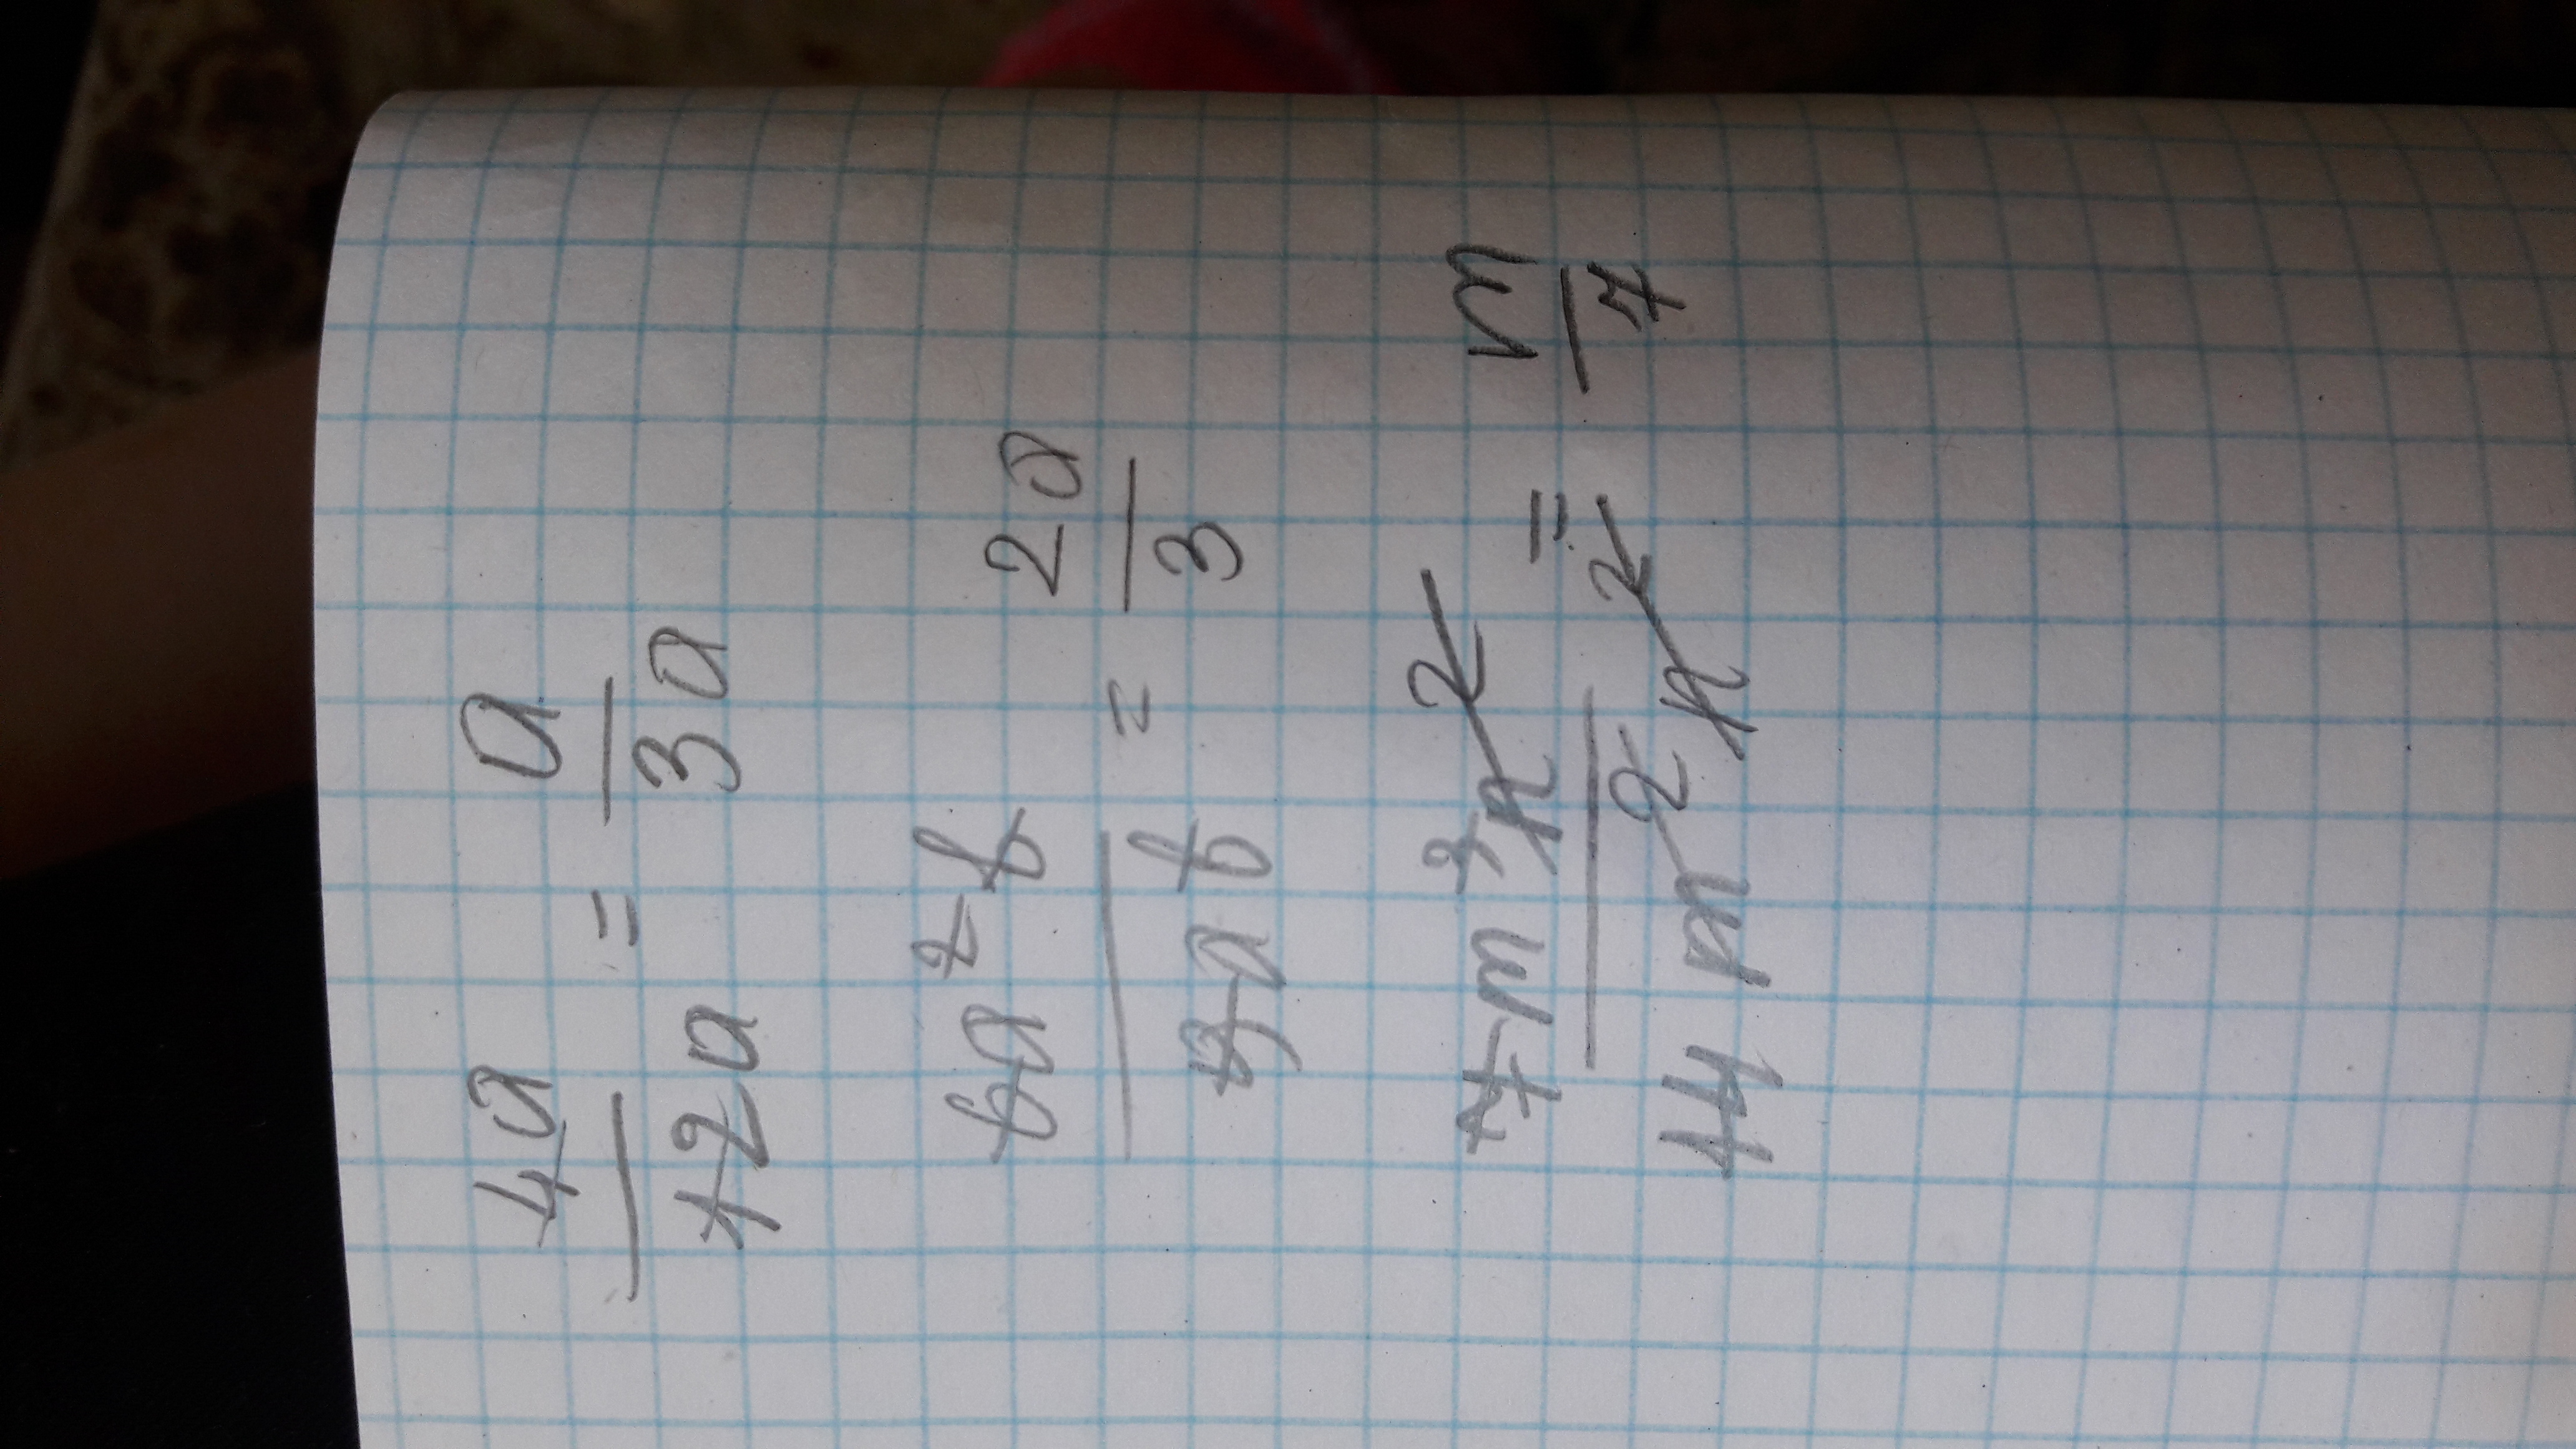 4a/12a = a/3a
6a²b/9ab = 2a/3
7m³n²/14m²n² = m/7